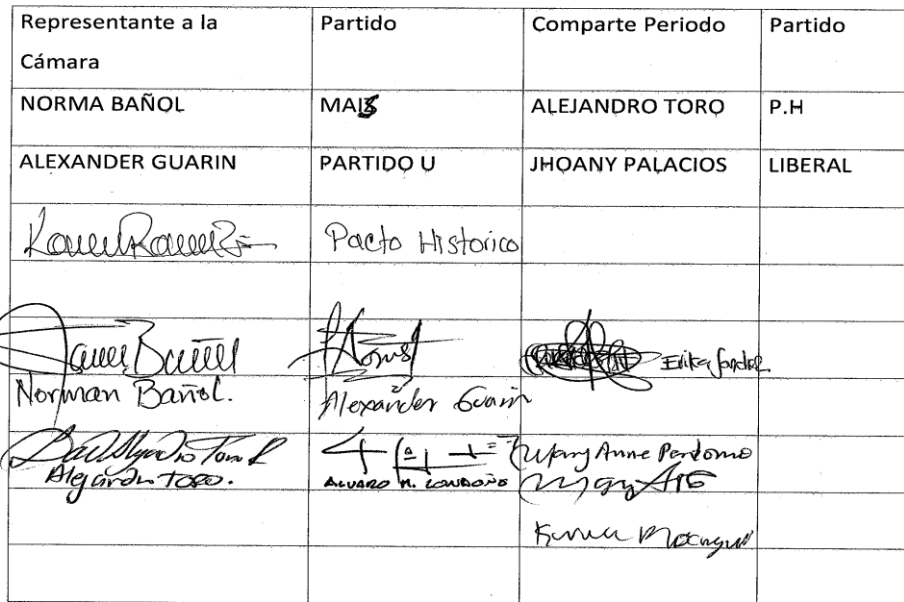 Representante a la Cámara Partido Comparte Periodo Partido
NORMA BAÑOL MAIS ALEJANDRO TORO P.H
ALEXANDER GUARIN PARTIDO U JHOANY PALACIOS LIBERAL
Pacto Historico
Norman Bañol.
Alexánder Guarin
Alejandro Toro.
ALVARO M. LONDOÑO
Anne Perdomo